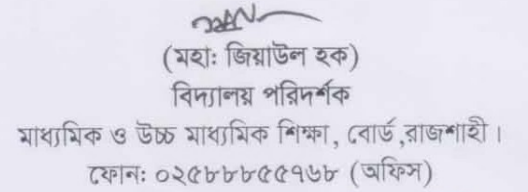 (মহাঃ জিয়াউল হক)
বিদ্যালয় পরিদর্শক
মাধ্যমিক ও উচ্চ মাধ্যমিক শিক্ষা, বোর্ড,রাজশাহী।
ফোনঃ ০২৫৮৮৮৫৫৭৬৮ (অফিস)